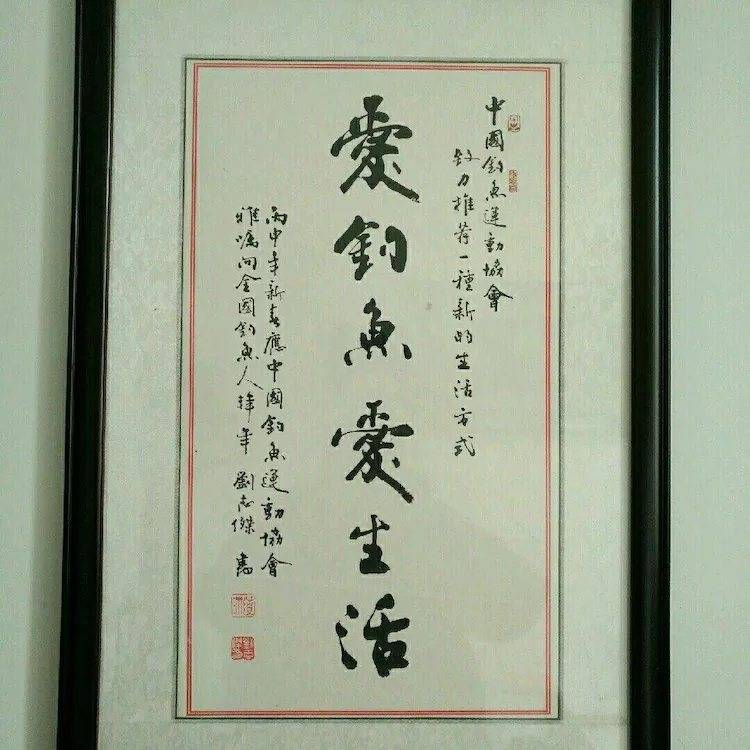 中國釣魚運動協會
致力推荐一種新的生活方式
愛釣魚愛生活
丙申年新春應中國釣魚運動協會
雅嘱向全國釣魚人拜年 劉志傑書